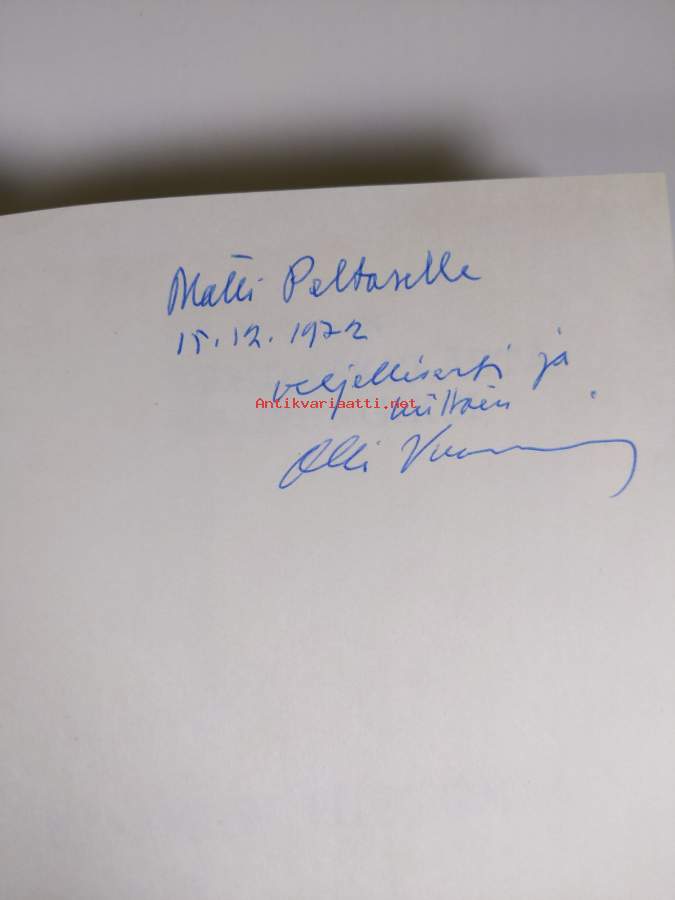 Matti Peltaselle
15.12.1972
veljellisesti ja
Antikvariaatti.net
kiittäen
Olli